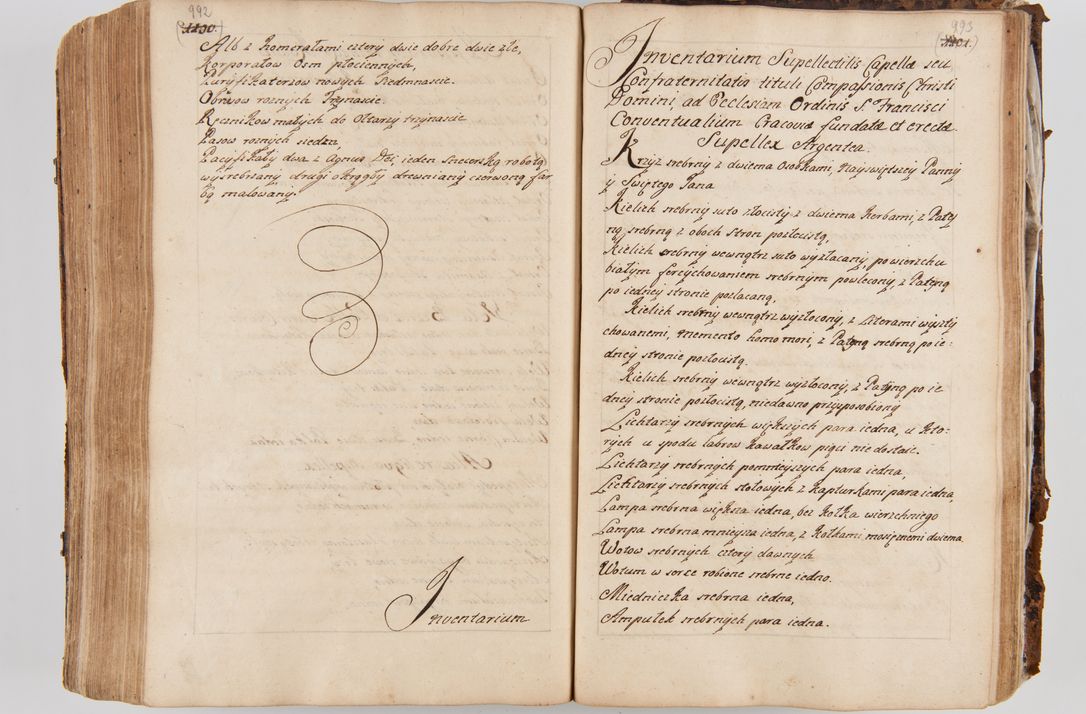 992
(1100.)
Alb z Homerałami cztery dwie dobre dwie złe,
Korporałow Osm płociennych,
Puryfikaterzow nowych Siedmnascie.
Obrusow roznych Trzynascie.
Ręcznikow małych do Ołtarzy trzynascie
Pasow roznych siedem,
Pacyfikały dwa z Agnus Dei, ieden Snycerską robotą
wysrebrzany drugi okrągły drewniany czerwoną far
bą malowany.
Inventarium
993
(1101.)
Inventarium Supellectilis Capellæ seu
Confraternitatis tituli Compassionis Christi
Domini, ad Ecclesiam Ordinis S. Francisci
Conventualium Cracoviæ fundatæ et erectæ.
Supellex Argentea.
Krzyz srebrny z dwiema Osobkami, Nayswiętszey Panny
y Swiętego Jana
Kielich srebrny suto złocisty z dwiema Herbami, z Paty
ną srebrną z oboch Stron pozłocistą,
Kielich srebrny wewnątrz suto wyzłacany, po wierzchu
białym sercychowaniem srebrnym powleczony, z Patyną
po iedney stronie pozłacaną,
Kielich srebrny wewnątrz wyzłocony, z Literami wyszty
chowanemi, memento homo mori, z Patyną srebrną po ie-
dney stronie pozłocistą.
Kielich srebrny wewnątrz wyzłocony, z Patyną po ie
dney stronie pozłocistą, niedawno przysposobiony
Lichtarzy srebrnych większych para iedna, u Kto-
rych u spodu labrow kawałkow pięci nie dostaie.
Lichtarzy srebrnych pomnieyszych para iedna,
Lichtarzy srebrnych stołowych z Kapturkami para iedna,
Lampa srebrna większa iedna, bez Kołka wierzchniego
Lampa srebrna mnieysza iedna, z Kołkami mosięznemi dwiema
Wotow srebrnych cztery dawnych
Wotum w serce robione srebrne iedno.
Miedniczka srebrna iedna,
Ampułek srebrnych para iedna.